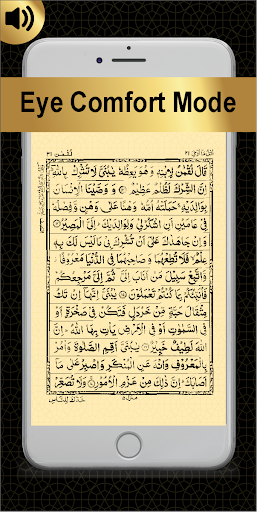 Eye Comfort Mode
اتل ما اوحی ٢١
لقمٰن ٣١
قَالَ لُقْمٰنُ لِابْنِهٖ وَهُوَ يَعِظُهٗ يٰبُنَيَّ لَا تُشْرِكْ بِاللّٰهِ
اِنَّ الشِّرْكَ لَظُلْمٌ عَظِيْمٌ ۝ وَوَصَّيْنَا الْاِنْسَانَ
بِوَالِدَيْهِ حَمَلَتْهُ اُمُّهٗ وَهْنًا عَلٰى وَهْنٍ وَّفِصَالُهٗ
فِيْ عَامَيْنِ اَنِ اشْكُرْ لِيْ وَلِوَالِدَيْكَ اِلَيَّ الْمَصِيْرُ ۝
وَاِنْ جَاهَدٰكَ عَلٰى اَنْ تُشْرِكَ بِيْ مَا لَيْسَ لَكَ بِهٖ
عِلْمٌ فَلَا تُطِعْهُمَا وَصَاحِبْهُمَا فِي الدُّنْيَا مَعْرُوْفًا
وَّاتَّبِعْ سَبِيْلَ مَنْ اَنَابَ اِلَيَّ ثُمَّ اِلَيَّ مَرْجِعُكُمْ
فَاُنَبِّئُكُمْ بِمَا كُنْتُمْ تَعْمَلُوْنَ ۝ يٰبُنَيَّ اِنَّهَا اِنْ تَكُ
مِثْقَالَ حَبَّةٍ مِّنْ خَرْدَلٍ فَتَكُنْ فِيْ صَخْرَةٍ اَوْ
فِي السَّمٰوٰتِ اَوْ فِي الْاَرْضِ يَاْتِ بِهَا اللّٰهُ اِنَّ
اللّٰهَ لَطِيْفٌ خَبِيْرٌ ۝ يٰبُنَيَّ اَقِمِ الصَّلٰوةَ وَاْمُرْ
بِالْمَعْرُوْفِ وَانْهَ عَنِ الْمُنْكَرِ وَاصْبِرْ عَلٰى مَا
اَصَابَكَ اِنَّ ذٰلِكَ مِنْ عَزْمِ الْاُمُوْرِ ۝ وَلَا تُصَعِّرْ
خَدَّكَ لِلنَّاسِ